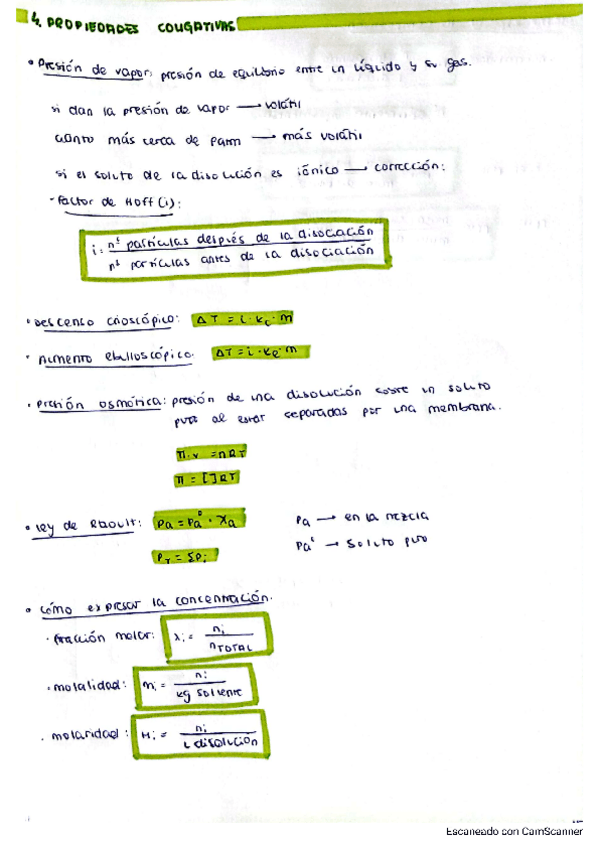 4. PROPIEDADES COLIGATIVAS
• Presión de vapor: presión de equilibrio entre un líquido y su gas.
si dan la presión de vapor → volátil
cuanto más cerca de Patm → más volátil
si el soluto de la disolución es iónico → corrección:
- Factor de Hoff (i):
i = nº partículas después de la disociación / nº partículas antes de la disociación
• Descenso crioscópico: ΔT = i · Kc · m
• Aumento ebulloscópico: ΔT = i · Ke · m
• Presión osmótica: presión de una disolución sobre un soluto
puro al estar separadas por una membrana.
π · v = nRT
π = [ ] RT
• Ley de Raoult: Pa = Pa⁰ · Xa Pa → en la mezcla
PT = ΣPi Pa⁰ → soluto puro
• Cómo expresar la concentración.
· fracción molar: Xi = ni / nTOTAL
· molalidad: mi = ni / kg solvente
· molaridad: Mi = ni / L disolución
Escaneado con CamScanner